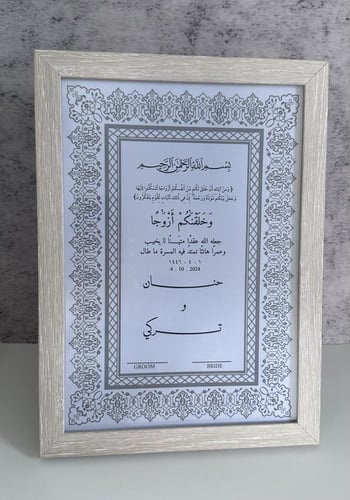 بسم الله الرحمن الرحيم
﴿ وَمِنْ آيَاتِهِ أَنْ خَلَقَ لَكُم مِّنْ أَنفُسِكُمْ أَزْوَاجًا لِّتَسْكُنُوا إِلَيْهَا
وَجَعَلَ بَيْنَكُم مَّوَدَّةً وَرَحْمَةً ۚ إِنَّ فِي ذَٰلِكَ لَآيَاتٍ لِّقَوْمٍ يَتَفَكَّرُونَ ﴾
وَخَلَقْنَكُمْ أَزْوَٰجًا
جعله الله عقدًا متينًا لا يخيب
وعمرًا هانئًا تمتد فيه المسرة ما طال
١ - ٤ - ١٤٤٦
4 . 10 . 2024
حنان
و
تركي
GROOM BRIDE